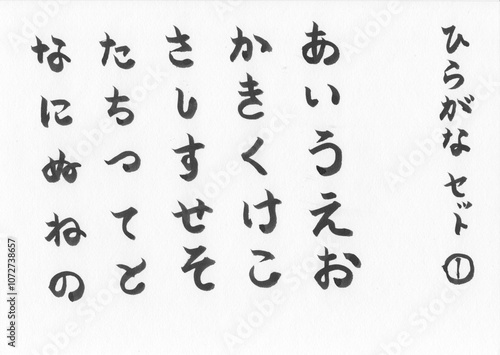 ひらがな セット ①
あいうえお
かきくけこ
さしすせそ
たちつてと
なにぬねの
Adobe Stock | #1072738657